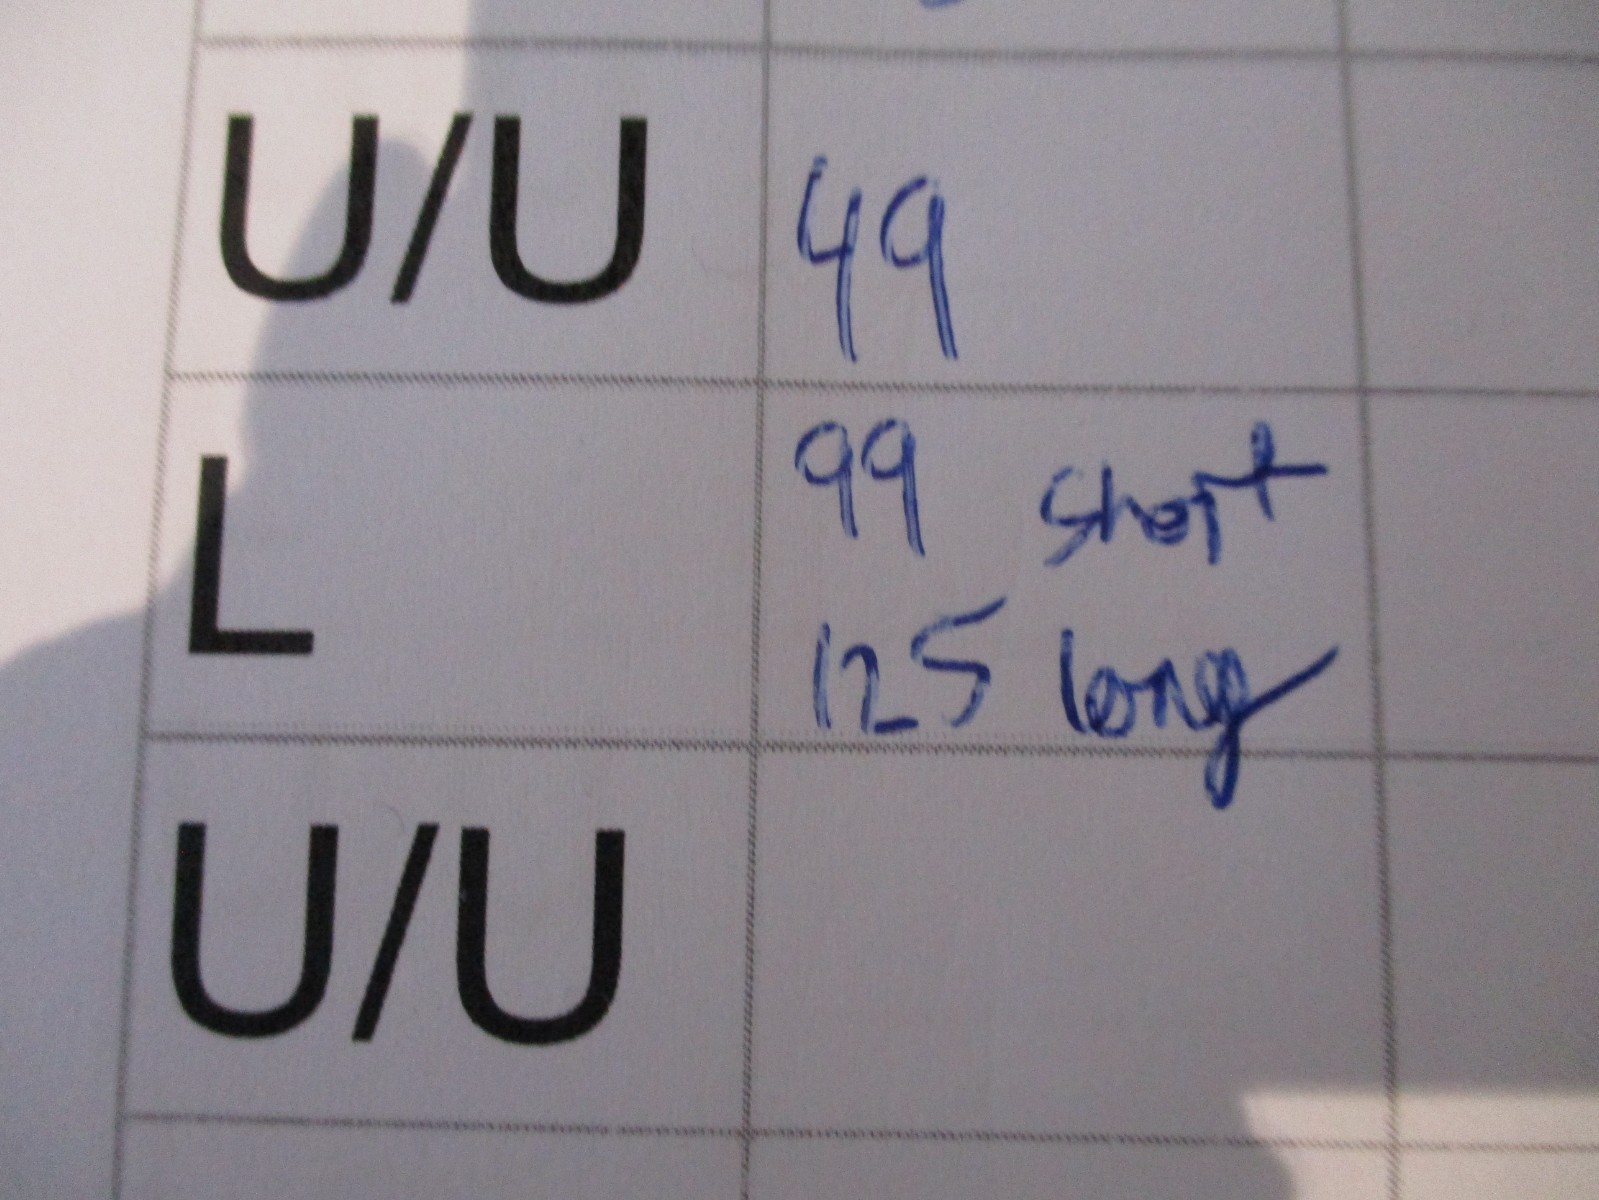 U/U 49
L 99 short
125 long
U/U